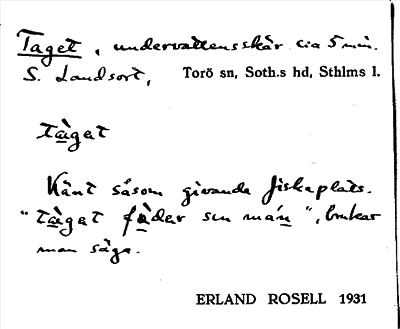 Taget, undervattensskär cia 5 min.
S. Landsort, Torö sn, Soth.s hd, Sthlms l.
tàgat
Känt såsom givande fiskeplats.
"tàgat fø̀der sın mán", brukar
man säga.
ERLAND ROSELL 1931